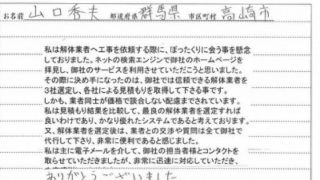 お名前 山口秀夫 都道府県 群馬県 市区町村 高崎市
私は解体業者へ工事を依頼する際に、ぼったくりに会う事を懸念
しておりました。ネットの検索エンジンで御社のホームページを
拝見し、御社のサービスを利用させていただこうと思いました。
その際に決め手になったのは、御社では信頼できる解体業者を
3社選定し、各社による見積もりを取得して下さる事です。
しかも、業者同士が価格で談合しない配慮までされています。
私は見積もり結果を比較して、最良の解体業者を選定すれば
良いわけであり、かなり優れたシステムであると考えております。
又、解体業者を選定後は、業者との交渉や質問は全て御社で
代行して下さり、非常に便利であると感じました。
私は主に電子メールを介して、御社の担当者様とコンタクトを
取らせていただきましたが、非常に迅速に対応していただき、
ありがとうございました